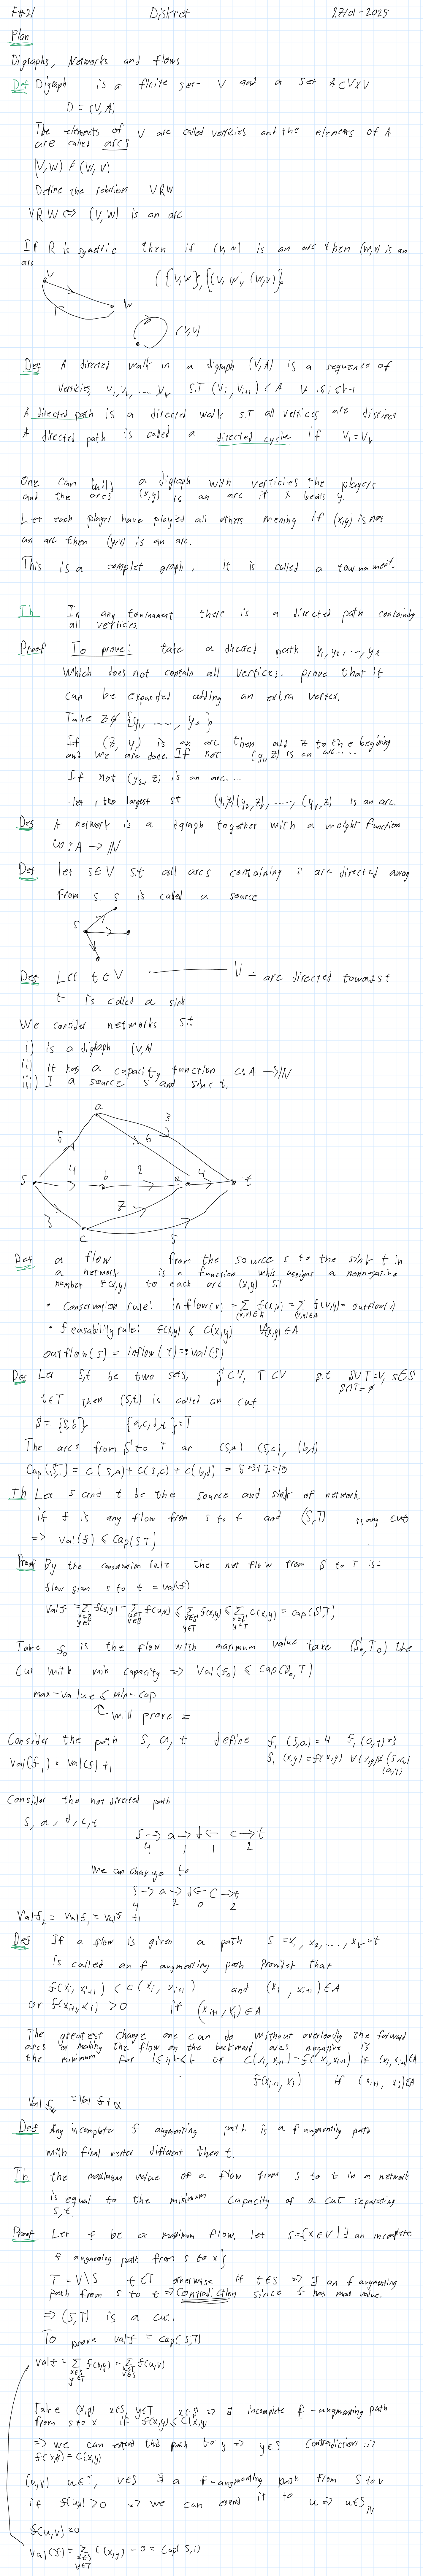 F#21 Diskret 27/01-2025
Plan
Digraphs, Networks and flows
Def Digraph is a finite set V and a set A⊂V×V
D = (V,A)
The elements of V are called verticies and the elements of A
are called arcs
(V,W) ≠ (W,V)
Define the relation VRW
VRW <=> (V,W) is an arc
If R is symetric then if (v,w) is an arc then (w,v) is an
arc
V
W
({v,w},{(v,w),(w,v)}
(v,v)
Def A directed walk in a digraph (V,A) is a sequence of
verticies, v₁,v₂,...,vₖ S.T (vᵢ,vᵢ₊₁)∈A ∀ 1≤i≤k-1
A directed path is a directed walk S.T all vertices are distinct
A directed path is called a directed cycle if V₁=Vₖ
One can build a digraph with verticies the players
and the arcs (x,y) is an arc if x beats y.
Let each player have played all others mening if (x,y) is not
an arc then (y,x) is an arc.
This is a complet graph, it is called a tournament.
Th In any tournament there is a directed path containing
all verticies.
Proof To prove: take a directed path y₁,y₂,...,yₑ
Which does not contain all vertices. prove that it
can be expanded adding an extra vertex.
Take z∉{y₁,....,yₑ}.
If (z,y₁) is an arc then add z to the begining
and we are done. If not (y₁,z) is an arc....
If not (y₂,z) is an arc....
let r the largest st (y₁,z)(y₂,z),....,(yᵣ,z) is an arc.
Def A network is a digraph together with a weight function
ω:A→ℕ
Def let s∈V st all arcs containing s are directed away
from s. s is called a source
s
Def Let t∈V ——— V — are directed toward t
t is called a sink
We consider networks s.t
i) is a digraph (V,A)
ii) it has a capacity function c:A→ℕ
iii) ∃ a source s and sink t.
a
3
5
6
s 4 b 2 d 4 t
7
3
c 5
Def a flow from the source s to the sink t in
a network is a function whis assigns a nonnegative
number f(x,y) to each arc (x,y) S.T
• Conservation rule: inflow(v) = Σ f(x,v) = Σ f(v,y) = outflow(v)
(x,v)∈A (v,y)∈A
• feasability rule: f(x,y) ≤ c(x,y) ∀(x,y)∈A
outflow(s) = inflow(t) =: val(f)
Def Let S,T be two sets, S⊂V, T⊂V s.t S∪T=V, s∈S
S∩T=∅
t∈T then (S,T) is called an cut
S={s,b} {a,c,d,t}=T
The arcs from S to T ar (s,a) (s,c), (b,d)
Cap(S,T) = c(s,a)+c(s,c)+c(b,d) = 5+3+2=10
Th Let s and t be the source and sink of network.
if f is any flow from s to t and (S,T) is any cut
=> Val(f) ≤ Cap(S,T)
Proof By the conservation rule the net flow from S to T is =
flow from s to t = val(f)
Val f = Σ f(x,y) - Σ f(u,v) ≤ Σ f(x,y) ≤ Σ c(x,y) = cap(S,T)
x∈S u∈T x∈S x∈S
y∈T v∈S y∈T y∈T
Take f₀ is the flow with maximum value take (S₀,T₀) the
Cut with min capacity => Val(f₀) ≤ Cap(S₀,T)
max-value ≤ min-cap
will prove =
Consider the path S, a, t define f₁(s,a)=4 f₁(a,t)=3
Val(f₁) = Val(f)+1 f₁(x,y)=f(x,y) ∀(x,y)≠(s,a)
(a,t)
Consider the not directed path
S, a, d, c, t
S→a→d← c→t
4 1 1 2
We can change to
S→a→d←c→t
4 2 0 2
Val f₂ = Val f₁ = val f +1
Def If a flow is given a path S=x₁,x₂,....,xₖ=t
is called an f augmenting path provided that
f(xᵢ,xᵢ₊₁) < c(xᵢ,xᵢ₊₁) and (xᵢ,xᵢ₊₁)∈A
or f(xᵢ₊₁,xᵢ) >0 if (xᵢ₊₁,xᵢ)∈A
The greatest change one can do without overloading the forward
arcs or making the flow on the backward arcs negative is
the minimum for 1≤i<k of c(xᵢ,xᵢ₊₁)-f(xᵢ,xᵢ₊₁) if (xᵢ,xᵢ₊₁)∈A
f(xᵢ₊₁,xᵢ) if (xᵢ₊₁,xᵢ)∈A
Val = Val f+α
Def Any incomplete f augmenting path is a f augmenting path
with final vertex different then t.
Th the maximum value of a flow from s to t in a network
is equal to the minimum capacity of a cut separating
s,t.
Proof Let f be a maximum flow. let S={x∈V|∃ an incomplete
f augmenting path from s to x}
T=V\S t∈T otherwise if t∈S => ∃ an f augmenting
path from s to t => Contradiction since f has max value.
=> (S,T) is a cut.
To prove val f = Cap(S,T)
Val f = Σ f(x,y) - Σ f(u,v)
x∈S u∈T
y∈T v∈S
Take (x,y) x∈S, y∈T x∈S => ∃ incomplete f-augmenting path
from s to x if f(x,y)<c(x,y)
=> we can extend this path to y => y∈S contradiction =>
f(x,y)=c(x,y)
(u,v) u∈T, v∈S ∃ a f-augmenting path from s to v
if f(u,v)>0 => we can extend it to u => u∈S
f(u,v)=0
Val(f) = Σ c(x,y) - 0 = Cap(S,T)
x∈S
y∈T